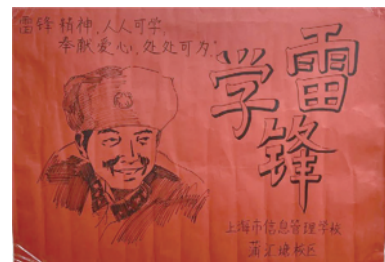 雷锋精神，人人可学，
奉献爱心，处处可为。
学雷锋
上海市信息管理学校
蒲汇塘校区